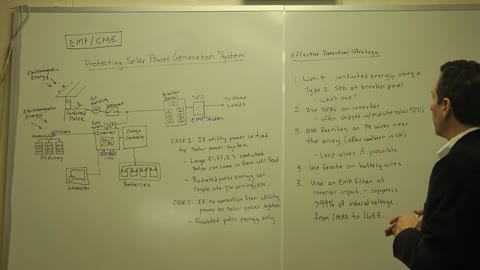 EMP/CME
Protecting Solar Power Generation System
Electromagnetic
Energy
Conducted
Pulse
Breaker
Panel
SPD
To Home
Loads
EMP Shield
Electromagnetic
Energy
PV Array
Inverter
Charge
Controller
Generator
Batteries
CASE 1: If utility power is tied
to solar power system
- Large E1, E2, E3 conducted
pulse can come in from util. feed
- Radiated pulse energy can
couple into pv wiring, etc.
CASE 2: If no connection from utility
power to solar power system
- Radiated pulse energy only
Effective Protection Strategy
1. Limit conducted energy using a
Type 2 SPD at breaker panel
- which one?
2. Use SPDs on inverter
- often shipped w/ moderate SPDs
3. Use ferrites on PV wires near
the array (after combiner is OK)
- Loop wires if possible
4. Use ferrite on battery wires
5. Use an EMP filter at
inverter input - suppress
>99% of induced voltage
from 1MHz to 1GHz